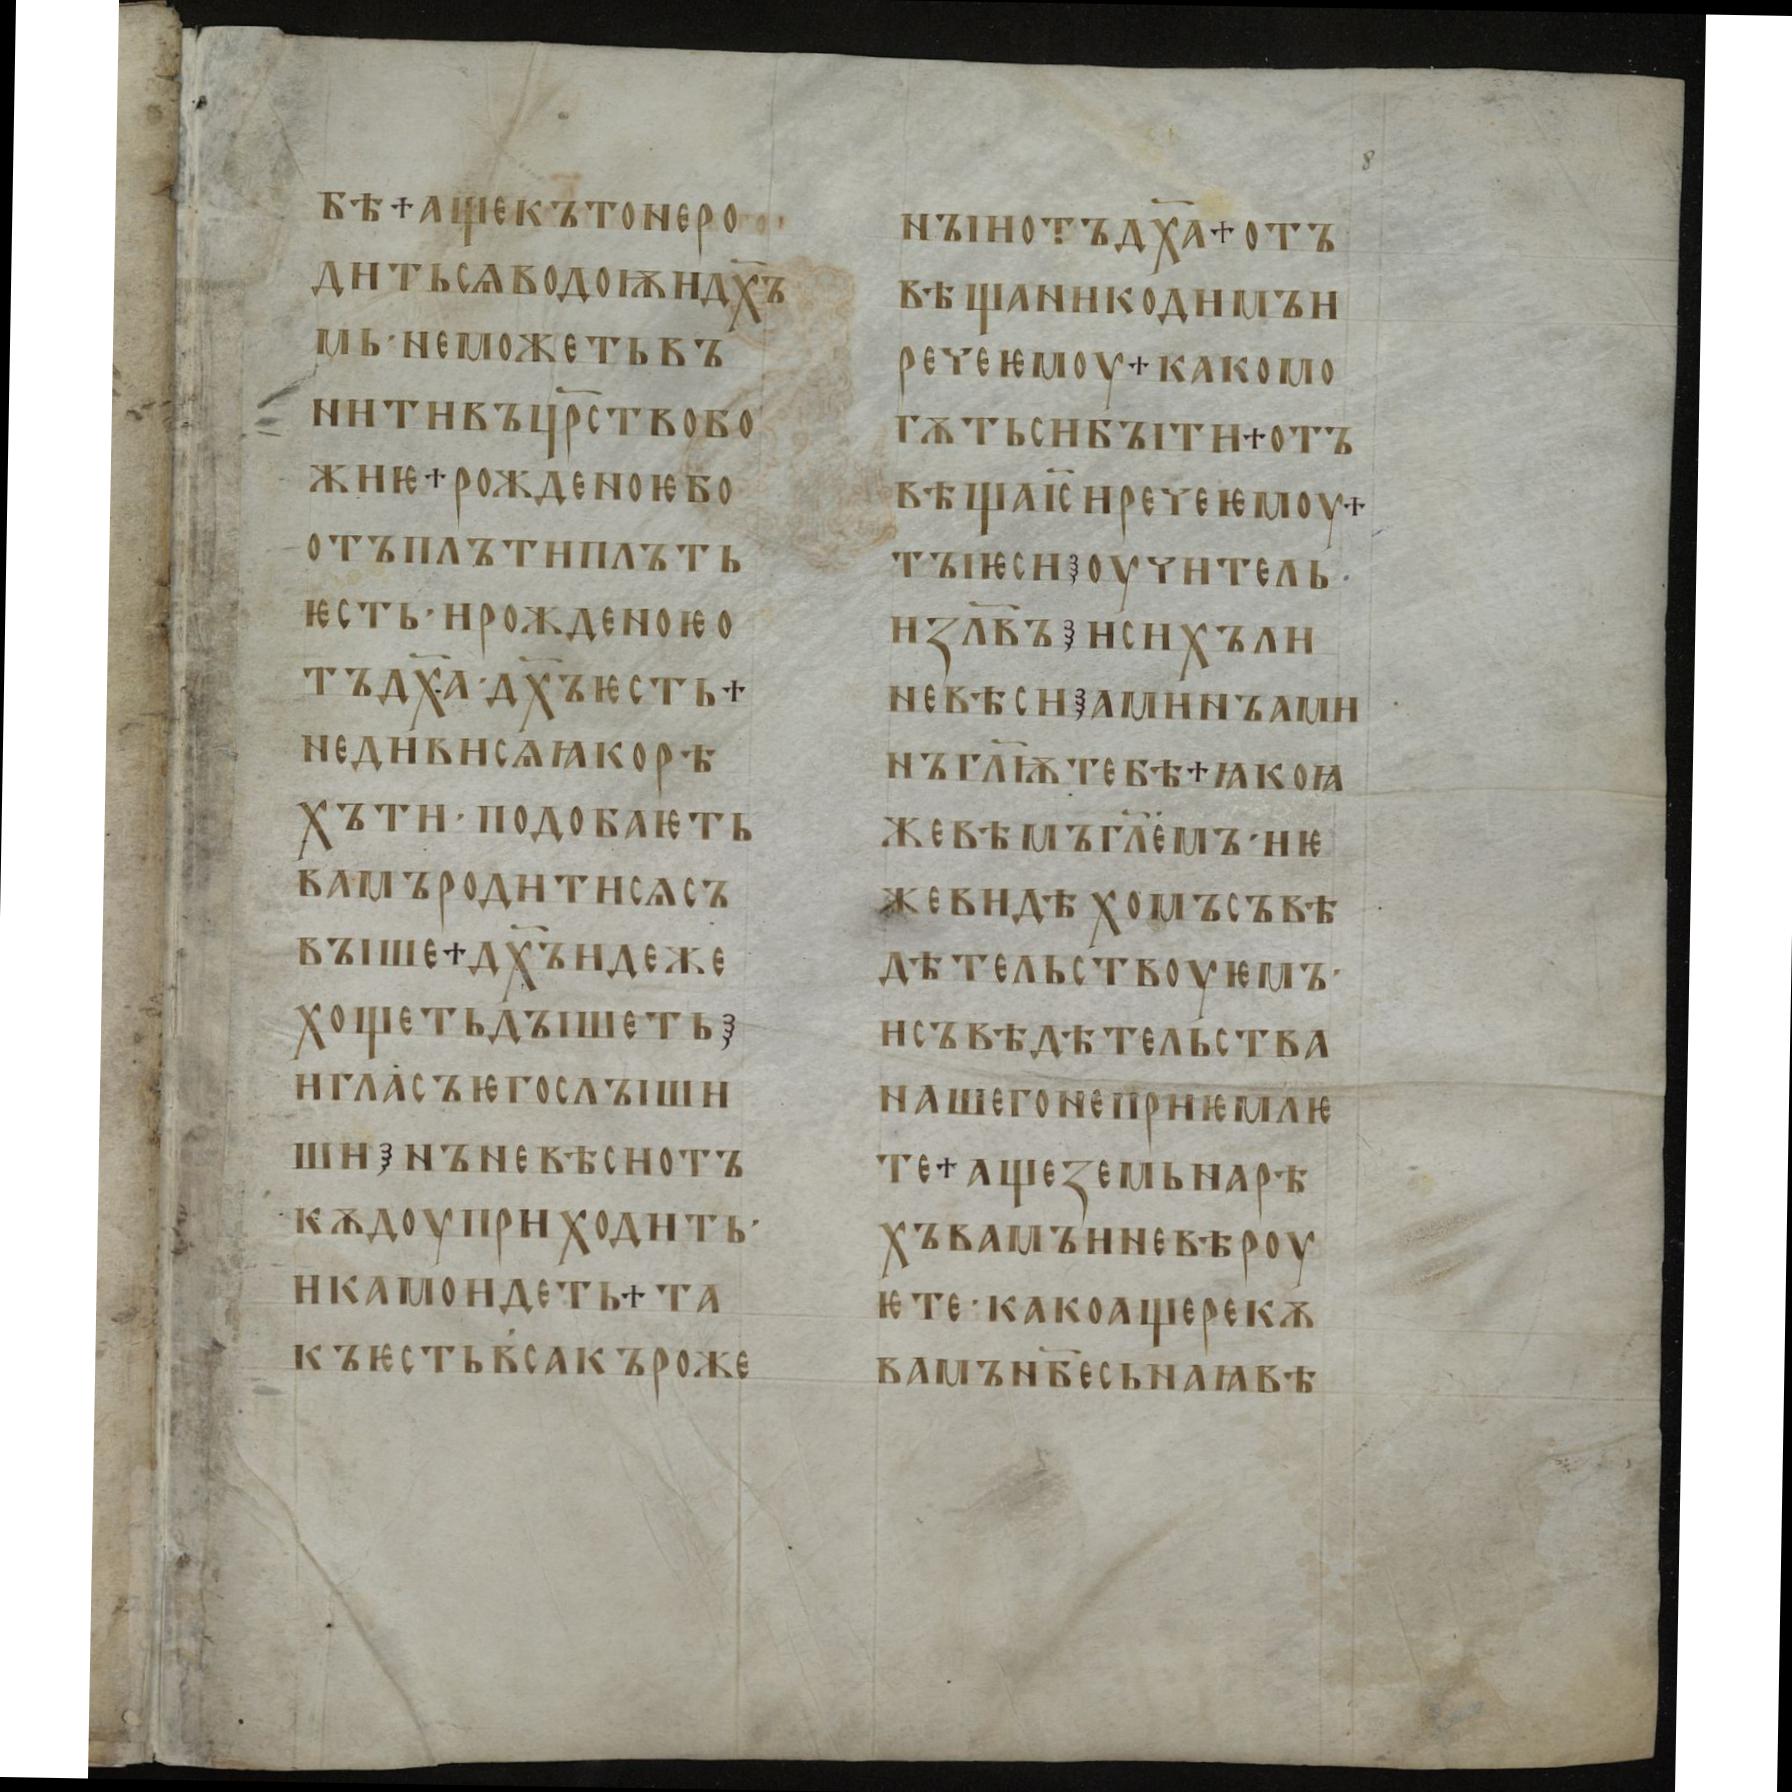 8
бѣ+аще къто не ро
дитьсѧ водоѭ и дх҃ъ
мь· не можеть въ
нити въ цр҃ство бо
жиѥ+рожденоѥ бо
отъ плъти плъть
ѥсть· и рожденоѥ о
тъ дх҃а· дх҃ъ ѥсть+
не диви сѧ ꙗко рѣ
хъ ти· подобаѥть
вамъ родити сѧ съ
выше+дх҃ъ идеже
хощеть дышеть ꙁ
и гласъ ѥго слыши
ши ꙁ нъ не вѣси отъ
кѫдоу приходить·
и камо идеть+та
къ ѥсть вьсакъ роже
ныи отъ дх҃а+отъ
вѣща никодимъ и
рече ѥмоу+како мо
гѫть си быти+отъ
вѣща іс҃ и рече ѥмоу+
ты ѥси ꙁ оучитель·
иꙁл҃въ ꙁ и сихъ ли
не вѣси ꙁ аминъ ами
нъ гл҃ѭ тебѣ+ꙗко ꙗ
же вѣмъ гл҃емъ· и ѥ
же видѣхомъ съвѣ
дѣтельствоуѥмъ·
и съвѣдѣтельства
нашего не приѥмлѥ
те+аще ꙁемьна рѣ
хъ вамъ и не вѣроу
ѥте· како аще рекѫ
вамъ нб҃есьнаꙗ вѣ